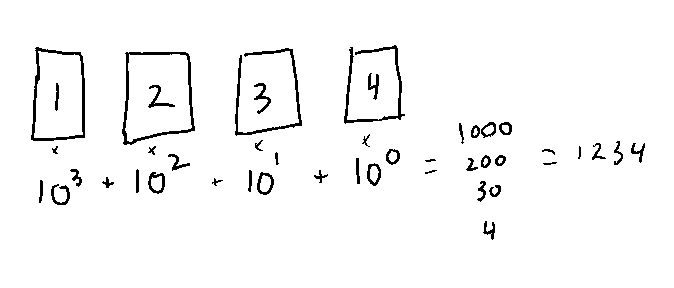 1 2 3 4
× × × ×
10³ + 10² + 10¹ + 10⁰ = 1000 200 30 4 = 1234